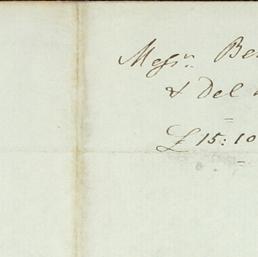 Messrs. Be
& Del
£ 15:10